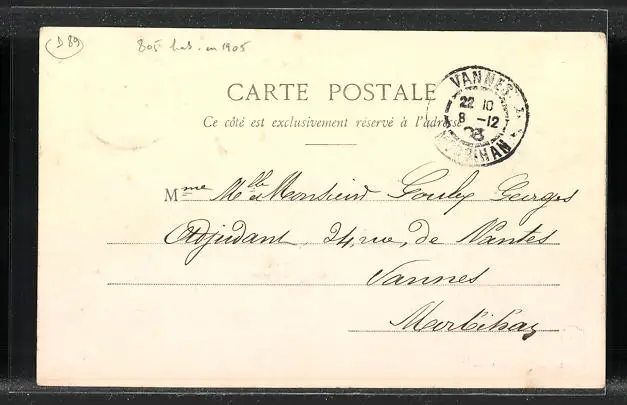 D 89
805 hab. en 1905
CARTE POSTALE
Ce côté est exclusivement réservé à l'adresse
VANNES
22 10
8 -12
03
MORBIHAN
Mme Mlle & Monsieur Georges
Adjudant, 24, rue, de Nantes
Vannes
Morbihan